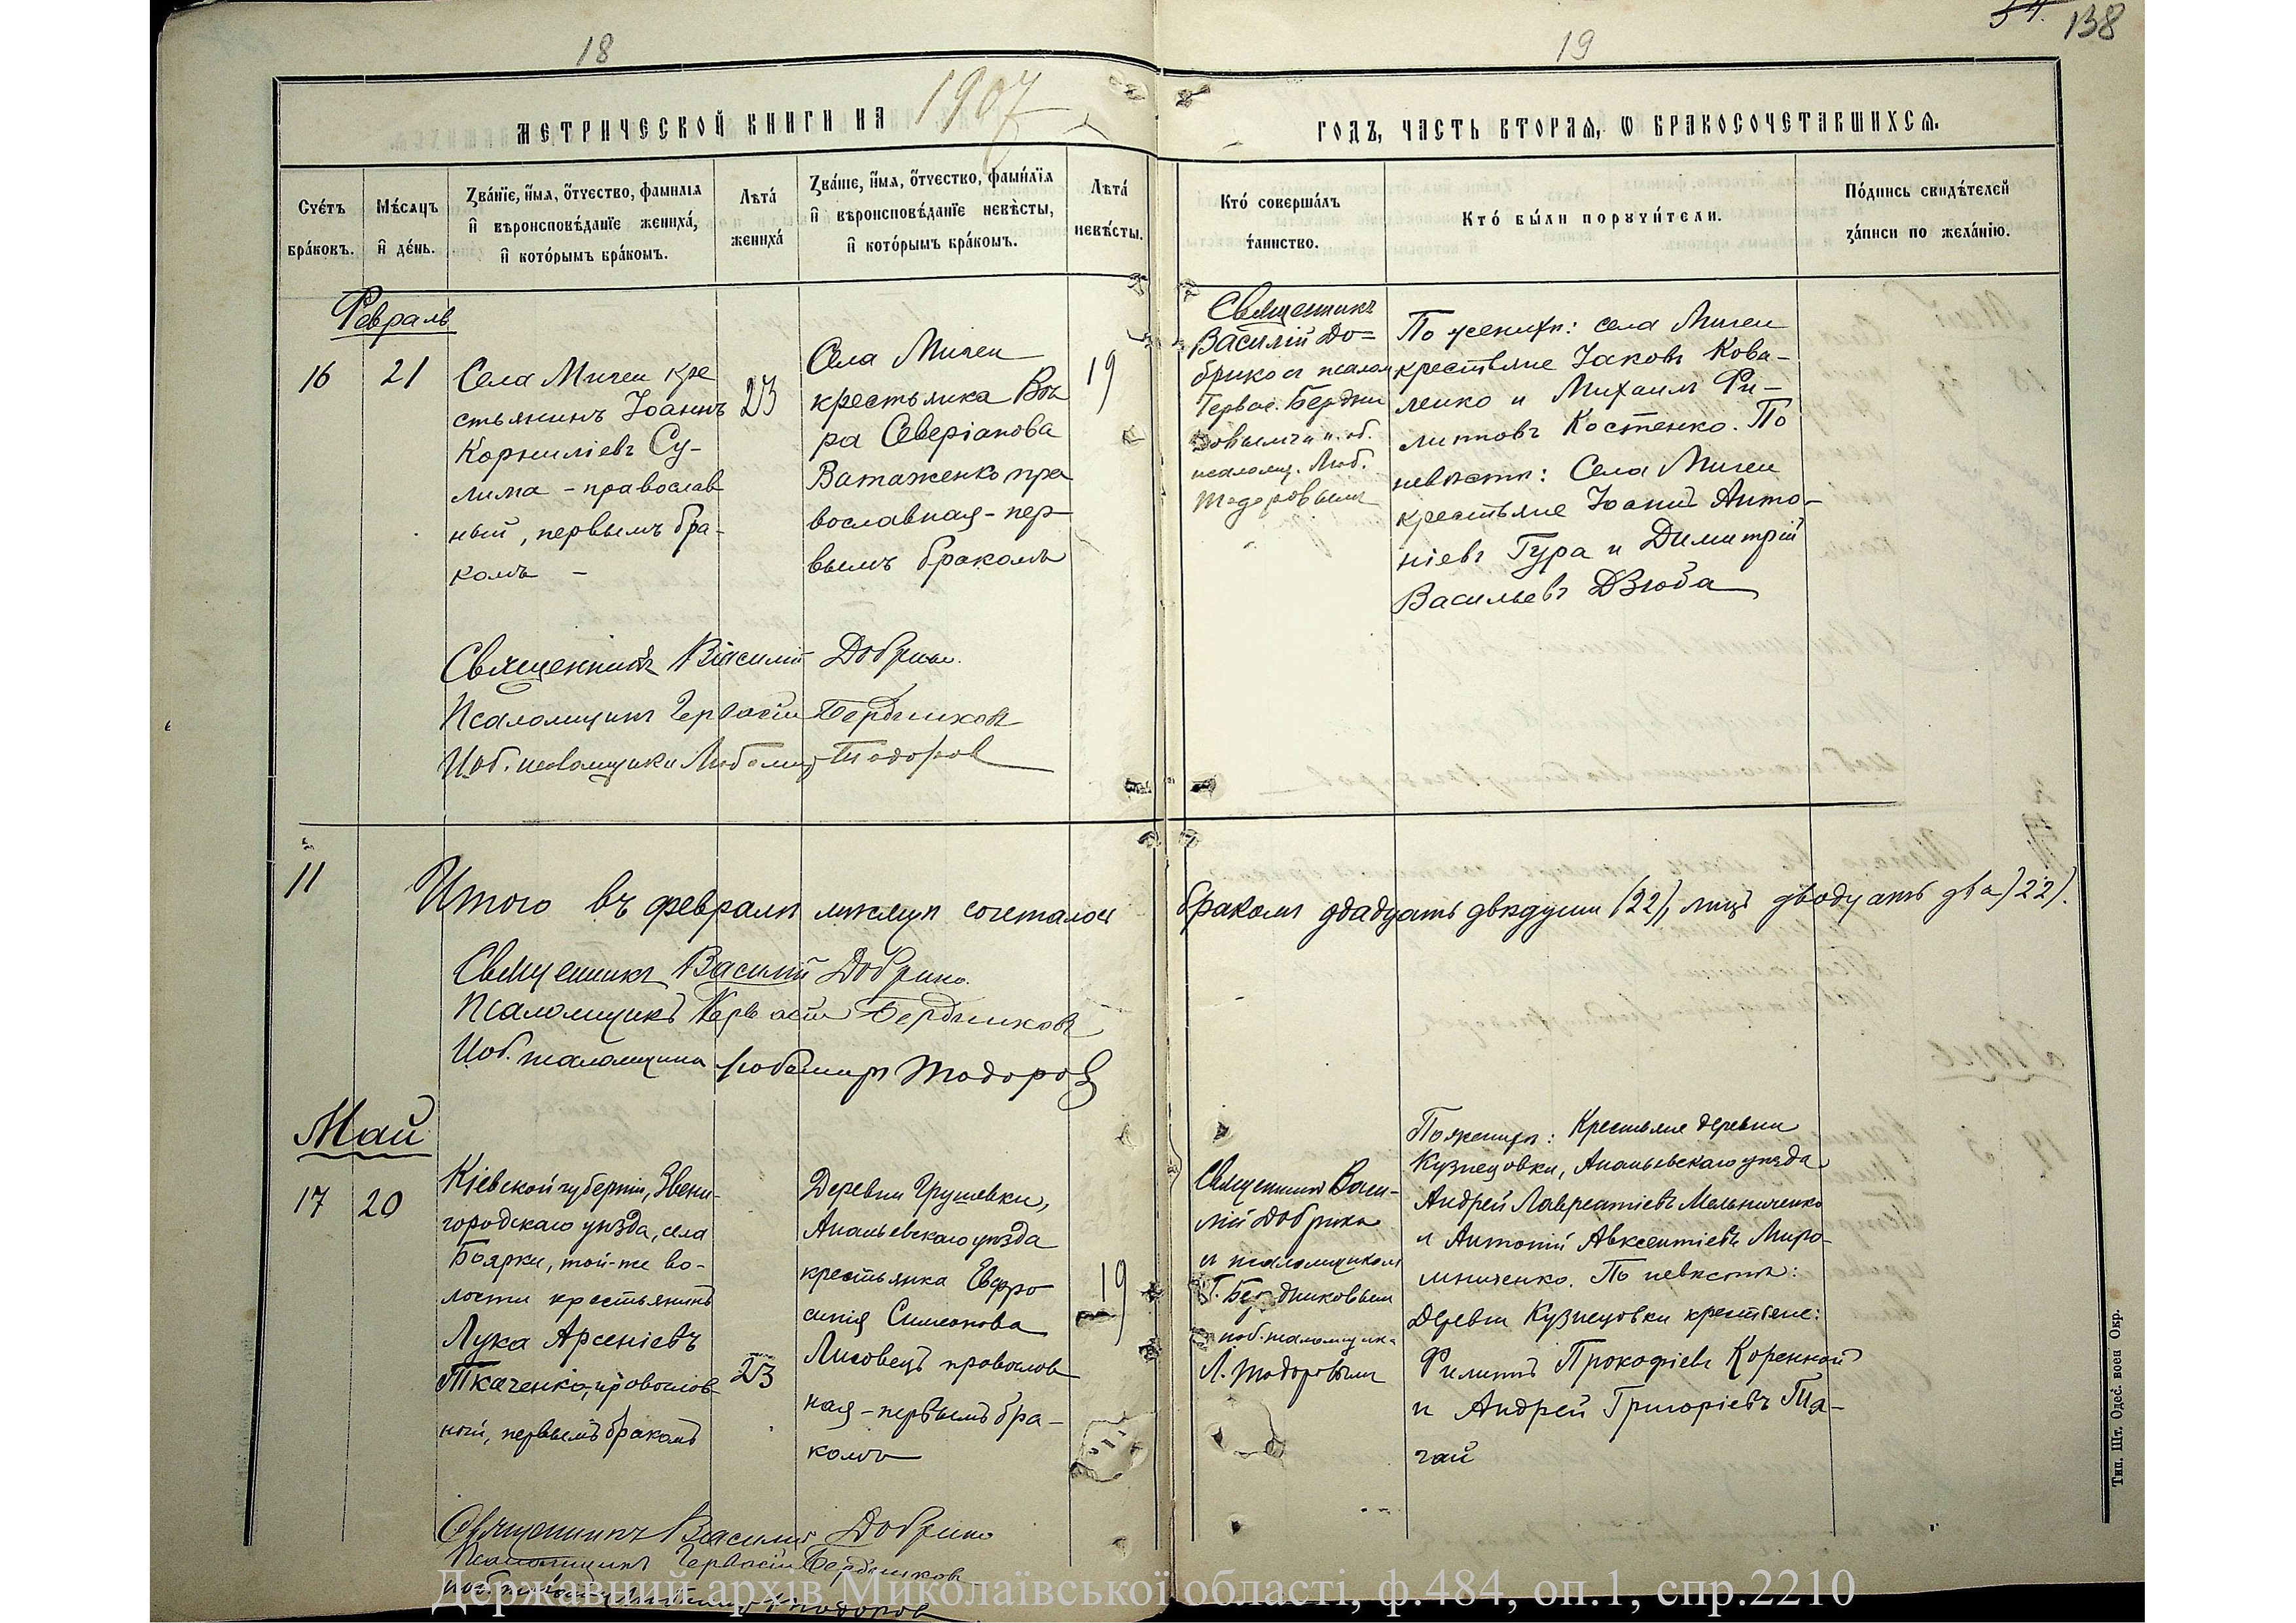 18
19
54.
138
МЕТРИЧЕСКОЙ КНИГИ НА 1907
ГОДЪ, ЧАСТЬ ВТОРАЯ, Ѡ БРАКОСОЧЕТАВШИХСЯ.
Счетъ браковъ.
Мѣсяцъ и день.
Званіе, имя, отчество, фамилія
и вѣроисповѣданіе жениха,
и которымъ бракомъ.
Лѣта
жениха
Званіе, имя, отчество, фамилія
и вѣроисповѣданіе невѣсты,
и которымъ бракомъ.
Лѣта
невѣсты.
Кто совершалъ
таинство.
Кто были поручители.
Подпись свидѣтелей
записи по желанію.
Февраль
16
21
Села Мигеи кре
стьянинъ Іоаннъ
Корниліевъ Су-
лима - православ
ный, первымъ бра-
комъ -
23
Села Мигеи
крестьянка Вѣ
ра Северіанова
Ватаженко пра
вославная - пер-
вымъ бракомъ
19
Священникъ
Василій До=
брико съ псалом
Гервас. Бердни
ковымъ и и. об.
псаломщ. Люб.
Тодоровымъ
По женихѣ: села Мигеи
крестьяне Іаковъ Кова-
ленко и Михаилъ Фи-
липповъ Костенко. По
невѣстѣ: Села Мигеи
крестьяне Іоаннъ Анто-
ніевъ Гура и Димитрій
Васильевъ Дзюба
Священникъ Василій Добрико.
Псаломщикъ Гервасій Бердниковъ
И об. псаломщика Любомир Тодоров
11
Итого въ февралѣ мѣсяцѣ сочеталось бракомъ двадцать двѣ души (22), лицъ двадцать два (22).
Священникъ Василій Добрико.
Псаломщикъ Гервасій Бердниковъ
И об. псаломщика Любомиръ Тодоров
Май
17
20
Кіевской губерніи, Звени-
городскаго уѣзда, села
Боярки, той-же во-
лости крестьянинъ
Лука Арсеніевъ
Ткаченко, православ-
ный, первымъ бракомъ
23
Деревни Грушевки,
Ананьевскаго уѣзда
крестьянка Евфро
синія Симеонова
Лисовецъ православ
ная - первымъ бра-
комъ
19
Священникъ Васи-
лій Добрико
съ псаломщикомъ
Г. Бердниковым
и об. псаломщика
Л. Тодоровымъ
По женихѣ: Крестьяне деревни
Кузнецовки, Ананьевскаго уѣзда
Андрей Лаврентіевъ Мельниченко
и Антоній Авксентіевъ Миро-
шниченко. По невѣстѣ:
Деревни Кузнецовки крестьяне:
Филиппъ Прокофіевъ Коренной
и Андрей Григоріевъ
чай
Священникъ Василій Добрико
Псаломщикъ Гервасій Бердниковъ
И об. псаломщика Любомир Тодоров
Тип. Шт. Одес. воен Окр.
Державний архів Миколаївської області, ф.484, оп.1, спр.2210